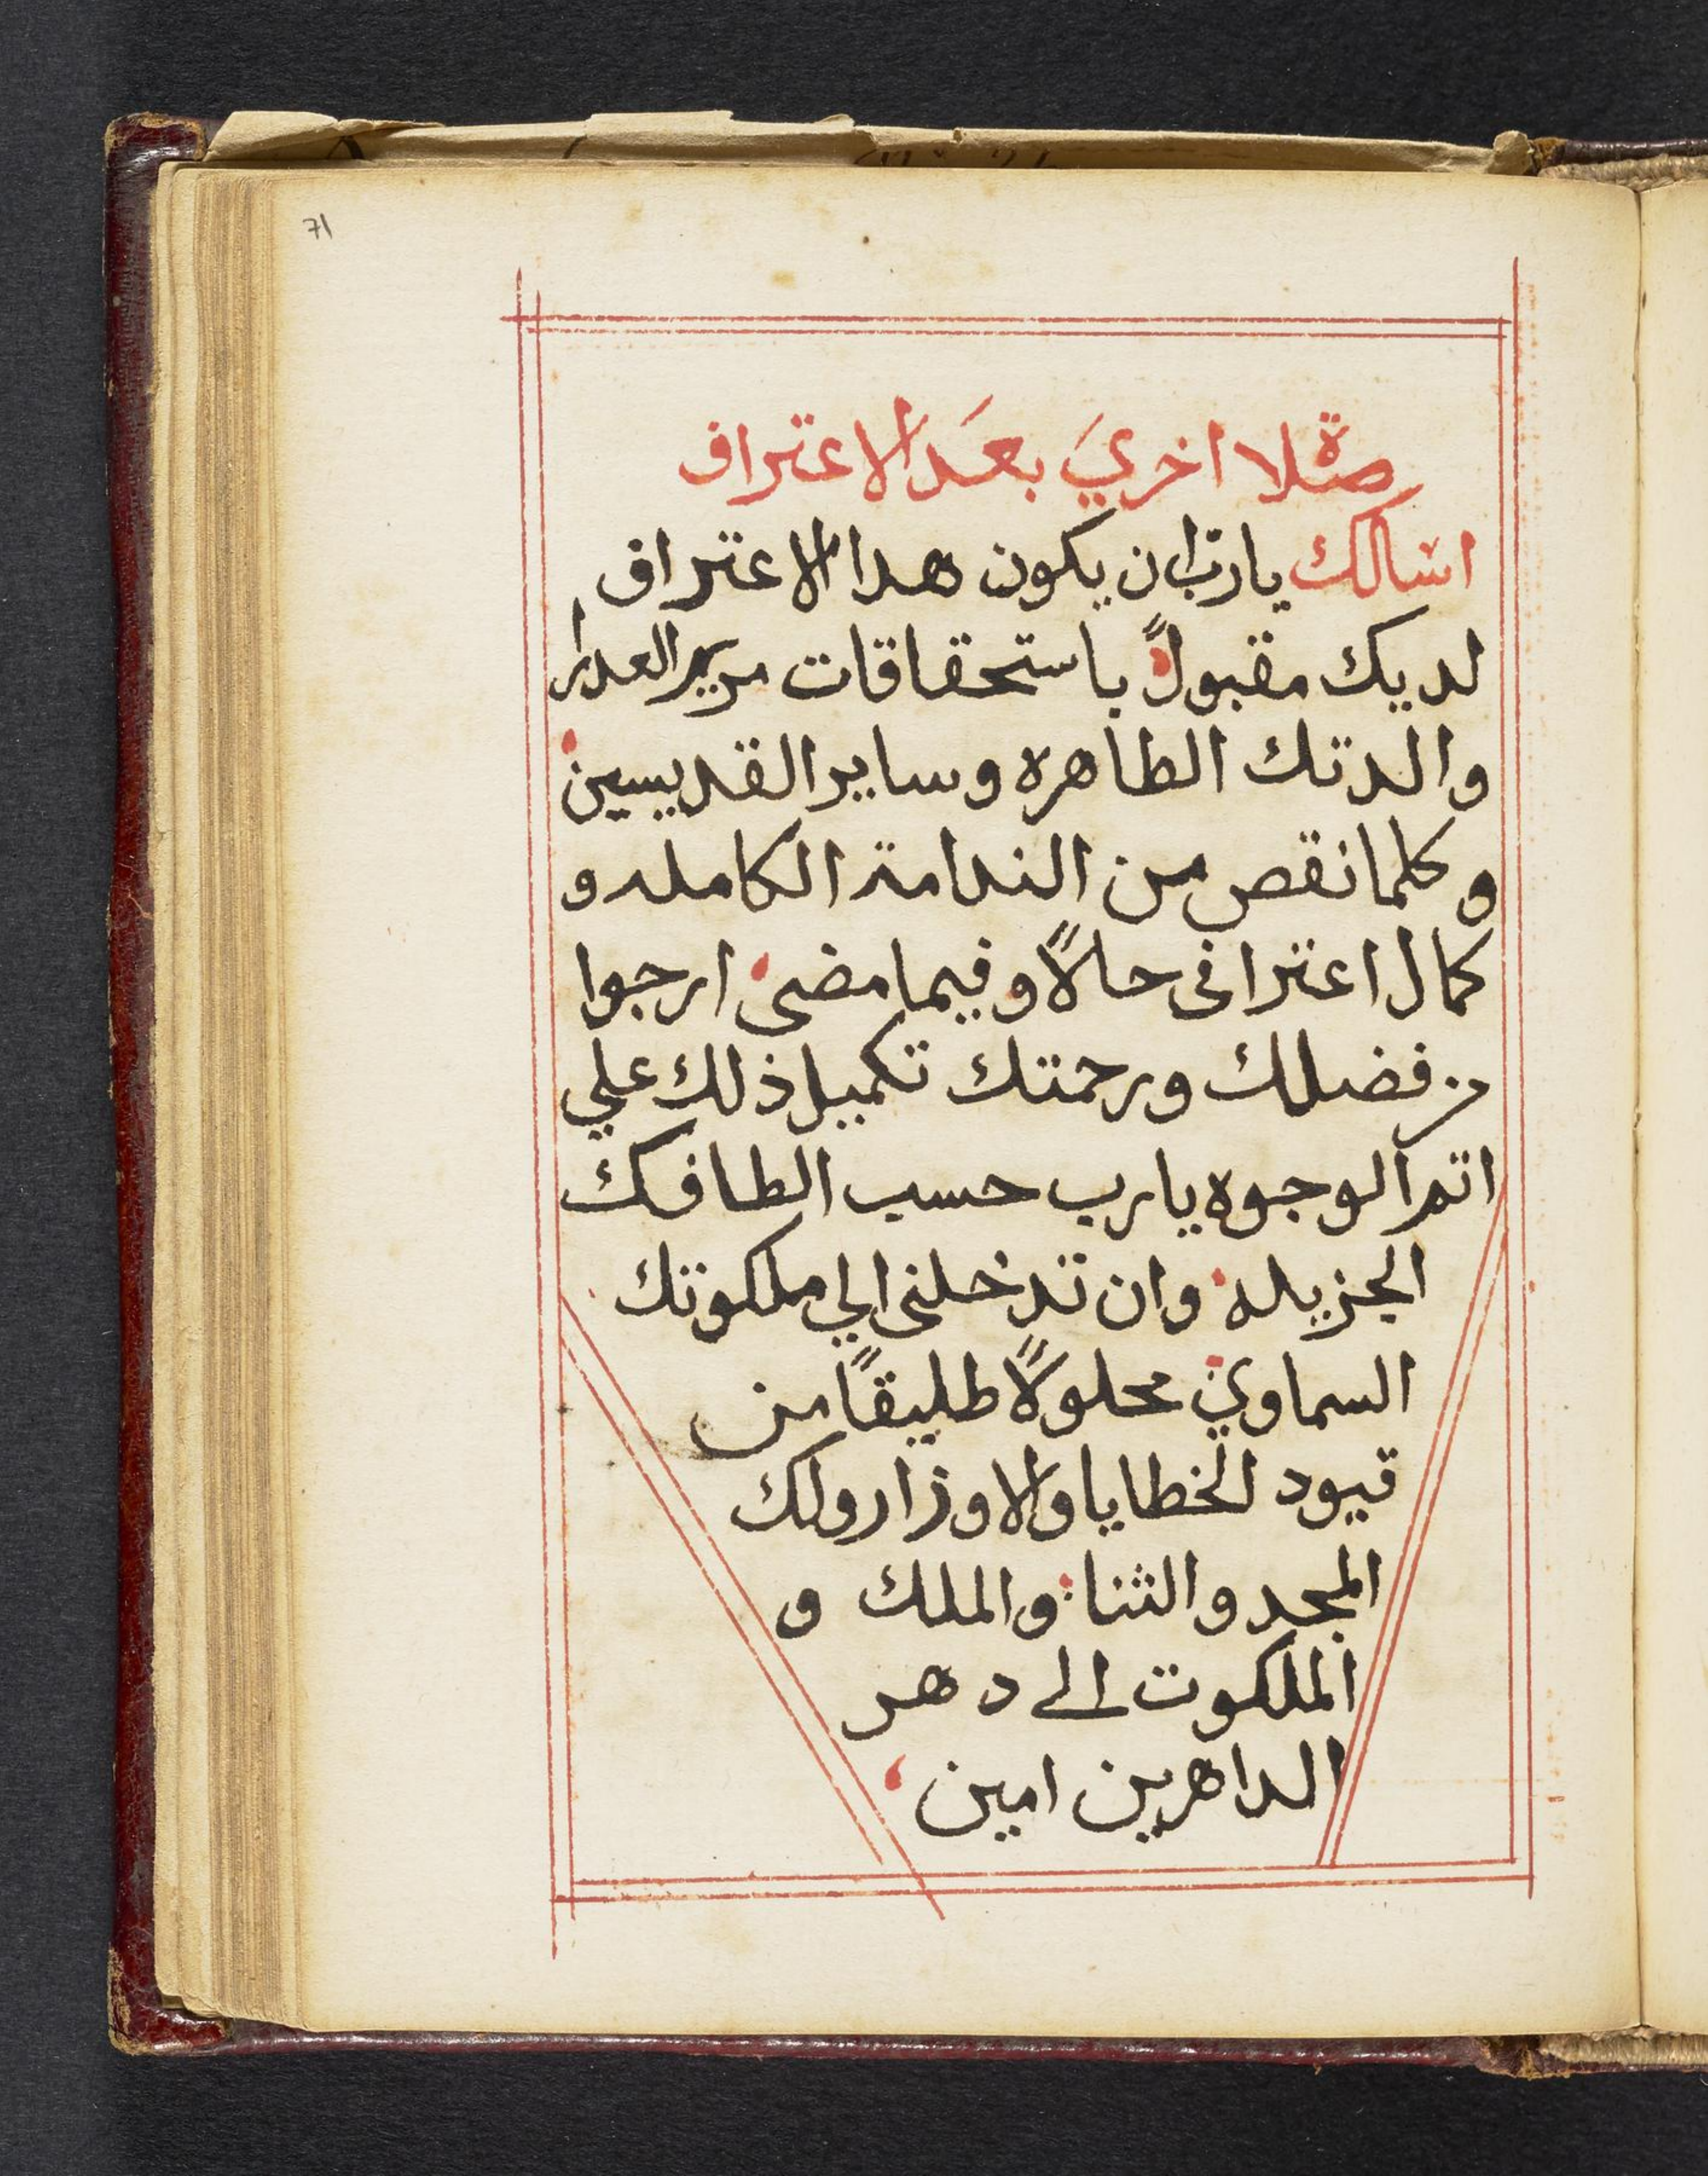 71
صلاة اخري بعد الاعتراف
اسالك يارب ان يكون هدا الاعتراف
لديك مقبولً باستحقاقات مريم العدرا
والدتك الطاهره وساير القديسين
وكلما نقص من الندامة الكامله و
كمال اعترافى حالاً وفيما مضى ارجوا
من فضلك ورحمتك تكميل ذلك علي
اتم الوجوه يارب حسب الطافك
الجزيله وان تدخلنى الي ملكوتك
السماوي محلولاً طليقًا من
قيود الخطايا والاوزار ولك
المجد والثنا والملك و
الملكوت الى دهر
الداهرين امين